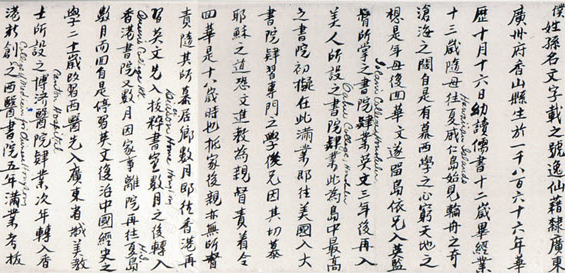 僕姓孫名文字載之號逸仙籍隸廣東
廣州府香山縣生於一千八百六十六年華
歷十月十六日幼讀儒書十二歲畢經業
十三歲隨母往夏威仁島始見輪舟之奇
Hawaiian Islands
滄海之闊自是有慕西學之心窮天地之
想是年母復回華文遂留島依兄入英監
督所掌之書院肄業英文三年後再入
Iolani College, Honolulu
美人所設之書院肄業此為島中最高
Oahu College, Honolulu
之書院初擬在此滿業即往美國入大
書院肄習專門之學後兄因其切慕
耶穌之道恐文進教為親督責着令
回華是十八歲時也抵家後親亦無所督
責隨其所慕居鄉數月即往香港再
習英文先入拔粹書室數月之後轉入
香港書院又數月因家事離院再往夏島
數月而回自是停習英文復治中國經史之
學二十一歲改習西醫先入廣東省城美教
士所設之博濟醫院肄業次年轉入香
Canton Hospital
港新創之西醫書院五年滿業考拔
College of Medicine for Chinese, Hongkong